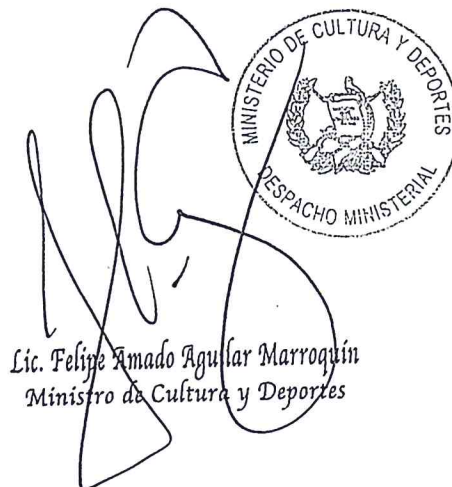 MINISTERIO DE CULTURA Y DEPORTES
DESPACHO MINISTERIAL
Lic. Felipe Amado Aguilar Marroquín
Ministro de Cultura y Deportes